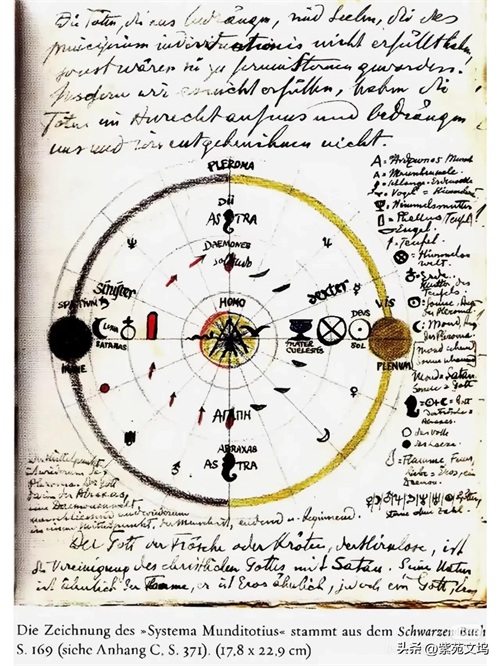 Die Toten, die uns bedrängen, sind Seelen, die das
principium individuationis nicht erfüllt haben,
sonst wären sie zu fernen Sternen geworden.
Insofern wir es nicht erfüllen, haben die
Toten ein Anrecht auf uns und bedrängen
uns und wir entgehen ihnen nicht.
PLEROMA
DII
ASTRA
DAEMONES
sinister
HOMO
dexter
VIS
SPATIUM
LUNA
SATANAS
MATER
COELESTIS
DEUS
SOL
INANE
PLENUM
ΑΓΑΠΗ
ABRAXAS
ASTRA
A =
A =
= Vogel =
= Himmelsmutter
= Phallus, Teufel
= Engel.
= Teufel.
= Himmels
welt.
= Erde.
Mutter des
Teufels.
= Sonne, Auge
des Pleroma.
= Mond, Auge
des Pleroma.
Mond = Satan
Sonne = Gott
= Gott
Abraxas.
= Flamme, Feuer,
Liebe = Eros, ein
Daemon.
= Götter,
Sterne ohne Zahl.
Der Mittelpunkt
ist wiederum das
Pleroma. Der Gott
darin der Abraxas,
eine Daemonenwelt
umschliesst und wiederum
in einem Mittelpunkt, die Menschheit, endend u. beginnend.
Der Gott der Frösche oder Kröten, der Hirnlose, ist
die Vereinigung des christlichen Gottes mit Satan. Seine Natur
ist ähnlich der Flamme, er ist Eros ähnlich, jedoch ein Gott; Eros
Die Zeichnung des »Systema Munditotius« stammt aus dem Schwarzen Buch
S. 169 (siehe Anhang C, S. 371). (17,8 x 22,9 cm)
头条 @紫苑文坞